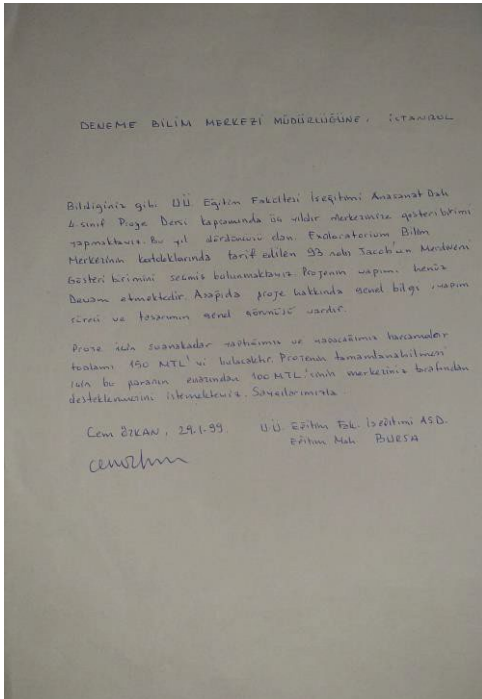 DENEME BİLİM MERKEZİ MÜDÜRLÜĞÜNE, İSTANBUL
Bildiğiniz gibi U.Ü. Eğitim Fakültesi İşeğitimi Anasanat Dalı
4. sınıf Proje Dersi kapsamında üç yıldır merkezinize gösteri birimi
yapmaktayız. Bu yıl dördüncüsü olan, Exploratorium Bilim
Merkezinin kataloklarında tarif edilen 93 nolu Jacob'un Merdiveni
Gösteri birimini seçmiş bulunmaktayız. Projenin yapımı henüz
Devam etmektedir. Aşağıda proje hakkında genel bilgi, yapım
süreci ve tasarımın genel görünüşü vardır.
Proje için şuanakadar yaptığımız ve yapacağımız harcamalar
toplamı 190 MTL'yi bulacaktır. Projenin tamamlanabilmesi
için bu paranın enazından 100 MTL.'sinin merkeziniz tarafından
desteklenmesini istemekteyiz. Saygılarımızla.
Cem ÖZKAN, 29.1.99 U.Ü. Eğitim Fak. İşeğitimi ASD.
Eğitim Mah. BURSA